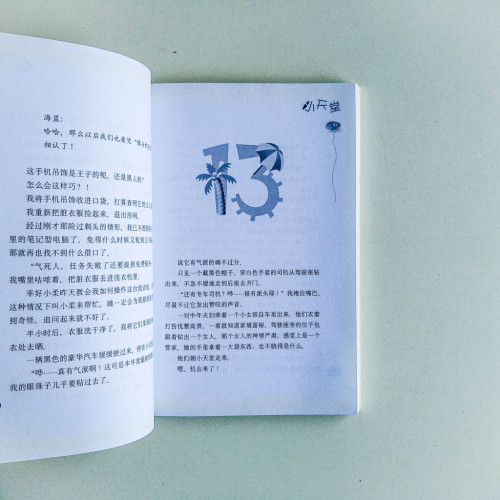 海蓝:
哈哈,那么以后我们也要凭
相认了!
这手机吊饰是王子的呢,还是黑人的?
怎么会这样巧?!
我将手机吊饰收进口袋,打算查明它的主人
我重新把脏衣服捡起来,退出房间。
经过刚才那险过剃头的情形,我
里的笔记型电脑了,免得什么时候又
那就再也找不到什么借口了。
“气死人,任务失败了还要提供免费服
我嘴里咕哝着,把脏衣服丢进洗衣机里。
幸好小柔昨天教会我如何操作这台洗衣
这种情况下叫小柔来帮忙,她一定会为我
到奇怪,追问起来就不好了。
半小时后,衣服洗干净了,我将它们
衣处去晒。
一辆黑色的豪华汽车缓缓驶过来,停在
“哗……真有气派啊!这可是本年度最
我的眼珠子几乎要贴过去了。
小天堂
13
说它有气派的确不过分。
只见一个戴黑色帽子、穿白色手套的司机从驾驶座钻
出来,不急不缓地走到后座去开门。
“还有专车司机!哗……很有派头喔!”我掩住嘴巴,
尽量不让它发出赞叹的声音。
一对中年夫妇牵着一个小女孩自车里出来,他们衣着
打扮优雅高贵,一看就知道家境富裕。驾驶座旁的位子也
跟着钻出一个女人,那个女人的神情严肃,感觉上是一个
管家,她的手里拿着一大袋东西,也不晓得是什么。
他们朝小天堂走来。
嘿,机会来了!